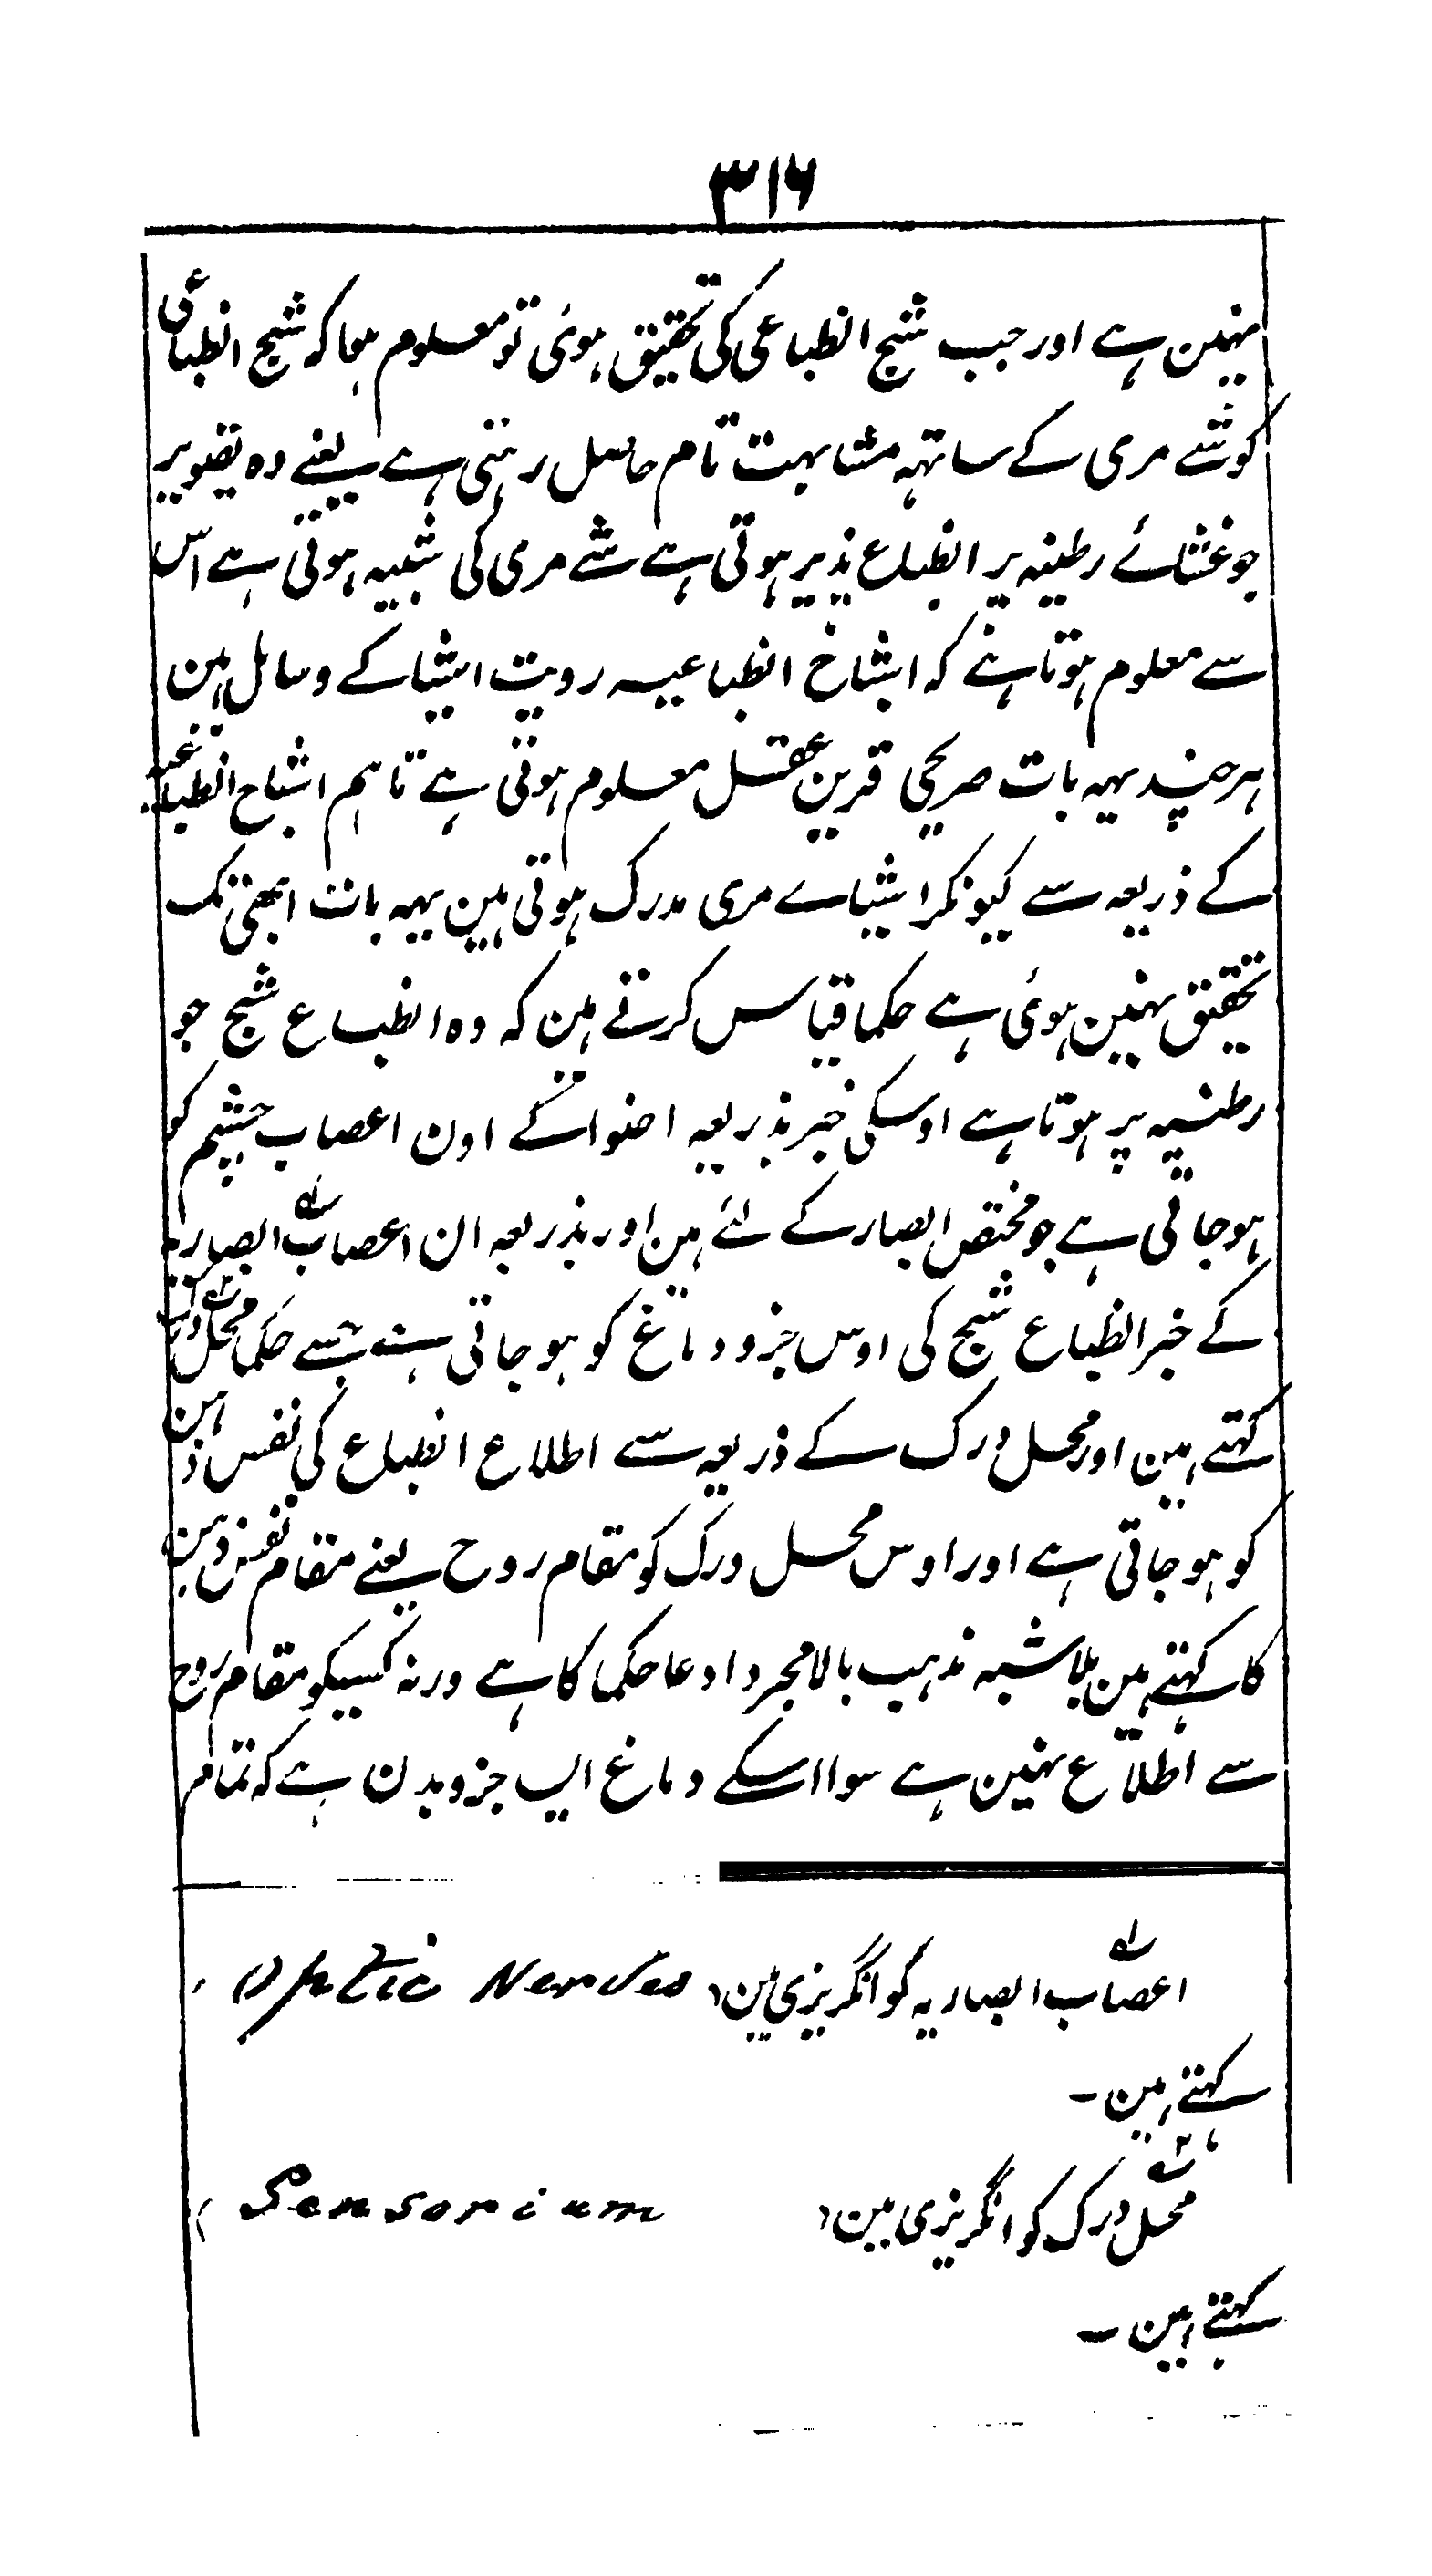 ۳۱۶
نہین ہے اور جب شبح انطباعی کی تحقیق ہوئی تو معلوم ہوا کہ شبح انطباعی
کو شے مری کے ساتہہ مشابہت تام حاصل رہتی ہے یعنے وہ تصویر
جو غشائے رطبنیہ پر انطباع پذیر ہوتی ہے شے مری کی شبیہ ہوتی ہے اس
سے معلوم ہوتا ہے کہ اشباح انطباعیہ رویت اشیا کے وسائل ہین
ہر چند یہہ بات صریحی قرین عقل معلوم ہوتی ہے تاہم اشباح انطباعیہ
کے ذریعہ سے کیونکر اشیاے مری مدرک ہوتی ہین یہہ بات ابھی تک
تحقیق نہین ہوئی ہے حکما قیاس کرتے ہین کہ وہ انطباع شبح جو
رطبنیہ پر ہوتا ہے اوسکی خبر بذریعہ اضوا کے اون اعصاب چشم کو
ہو جاتی ہے جو مختص ابصار کے لئے ہین اور بذریعہ ان اعصاب ابصاریہ
کے خبر انطباع شبح کی اوس جزو دماغ کو ہو جاتی ہے جسے حکما محل درک
کہتے ہین اور محل درک کے ذریعہ سے اطلاع انطباع کی نفس ذہن
کو ہو جاتی ہے اور اوس محل درک کو مقام روح یعنے مقام نفس ذہن
کا کہتے ہین بلا شبہ مذہب بالا مجرد ادعا حکما کا ہے ورنہ کسیکو مقام روح
سے اطلاع نہین ہے سوا اسکے دماغ ایسا جزو بدن ہے کہ تمام
لہ اعصاب ابصاریہ کو انگریزی مین (Optic Nerves)
کہتے ہین۔
۲ہ محل درک کو انگریزی مین (Sensorium)
کہتے ہین۔